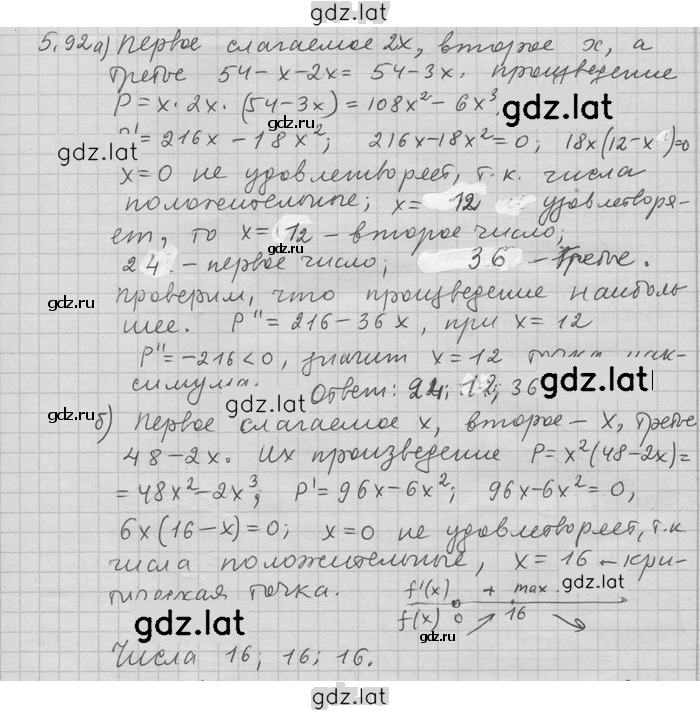 gdz.lat
5.92 а) Первое слагаемое 2x, второе x, а
третье 54-x-2x=54-3x. произведение
P=x·2x·(54-3x)=108x²-6x³.
gdz.lat
P'=216x-18x²; 216x-18x²=0; 18x(12-x)=0
gdz.lat
x=0 не удовлетворяет, т.к. числа
положительные; x= 12 удовлетворя-
gdz.lat
ет, то x= 12 - второе число;
gdz.lat
24. - первое число; 36 - третье.
gdz.lat
проверим, что произведение наиболь
шее. P''=216-36x, при x=12
P''=-216<0, значит x=12 точка мак-
gdz.lat
симума. Ответ: 24; 12; 36
gdz.lat
б) Первое слагаемое x, второе - x, третье
gdz.lat
48-2x. Их произведение P=x²(48-2x)=
=48x²-2x³; P'=96x-6x²; 96x-6x²=0,
6x(16-x)=0; x=0 не удовлетворяет, т.к
числа положительные, x=16 - кри-
тическая точка. f'(x) + max -
gdz.lat
f(x) 0 16
gdz.lat
gdz.lat
gdz.lat
Числа 16; 16; 16.
gdz.lat